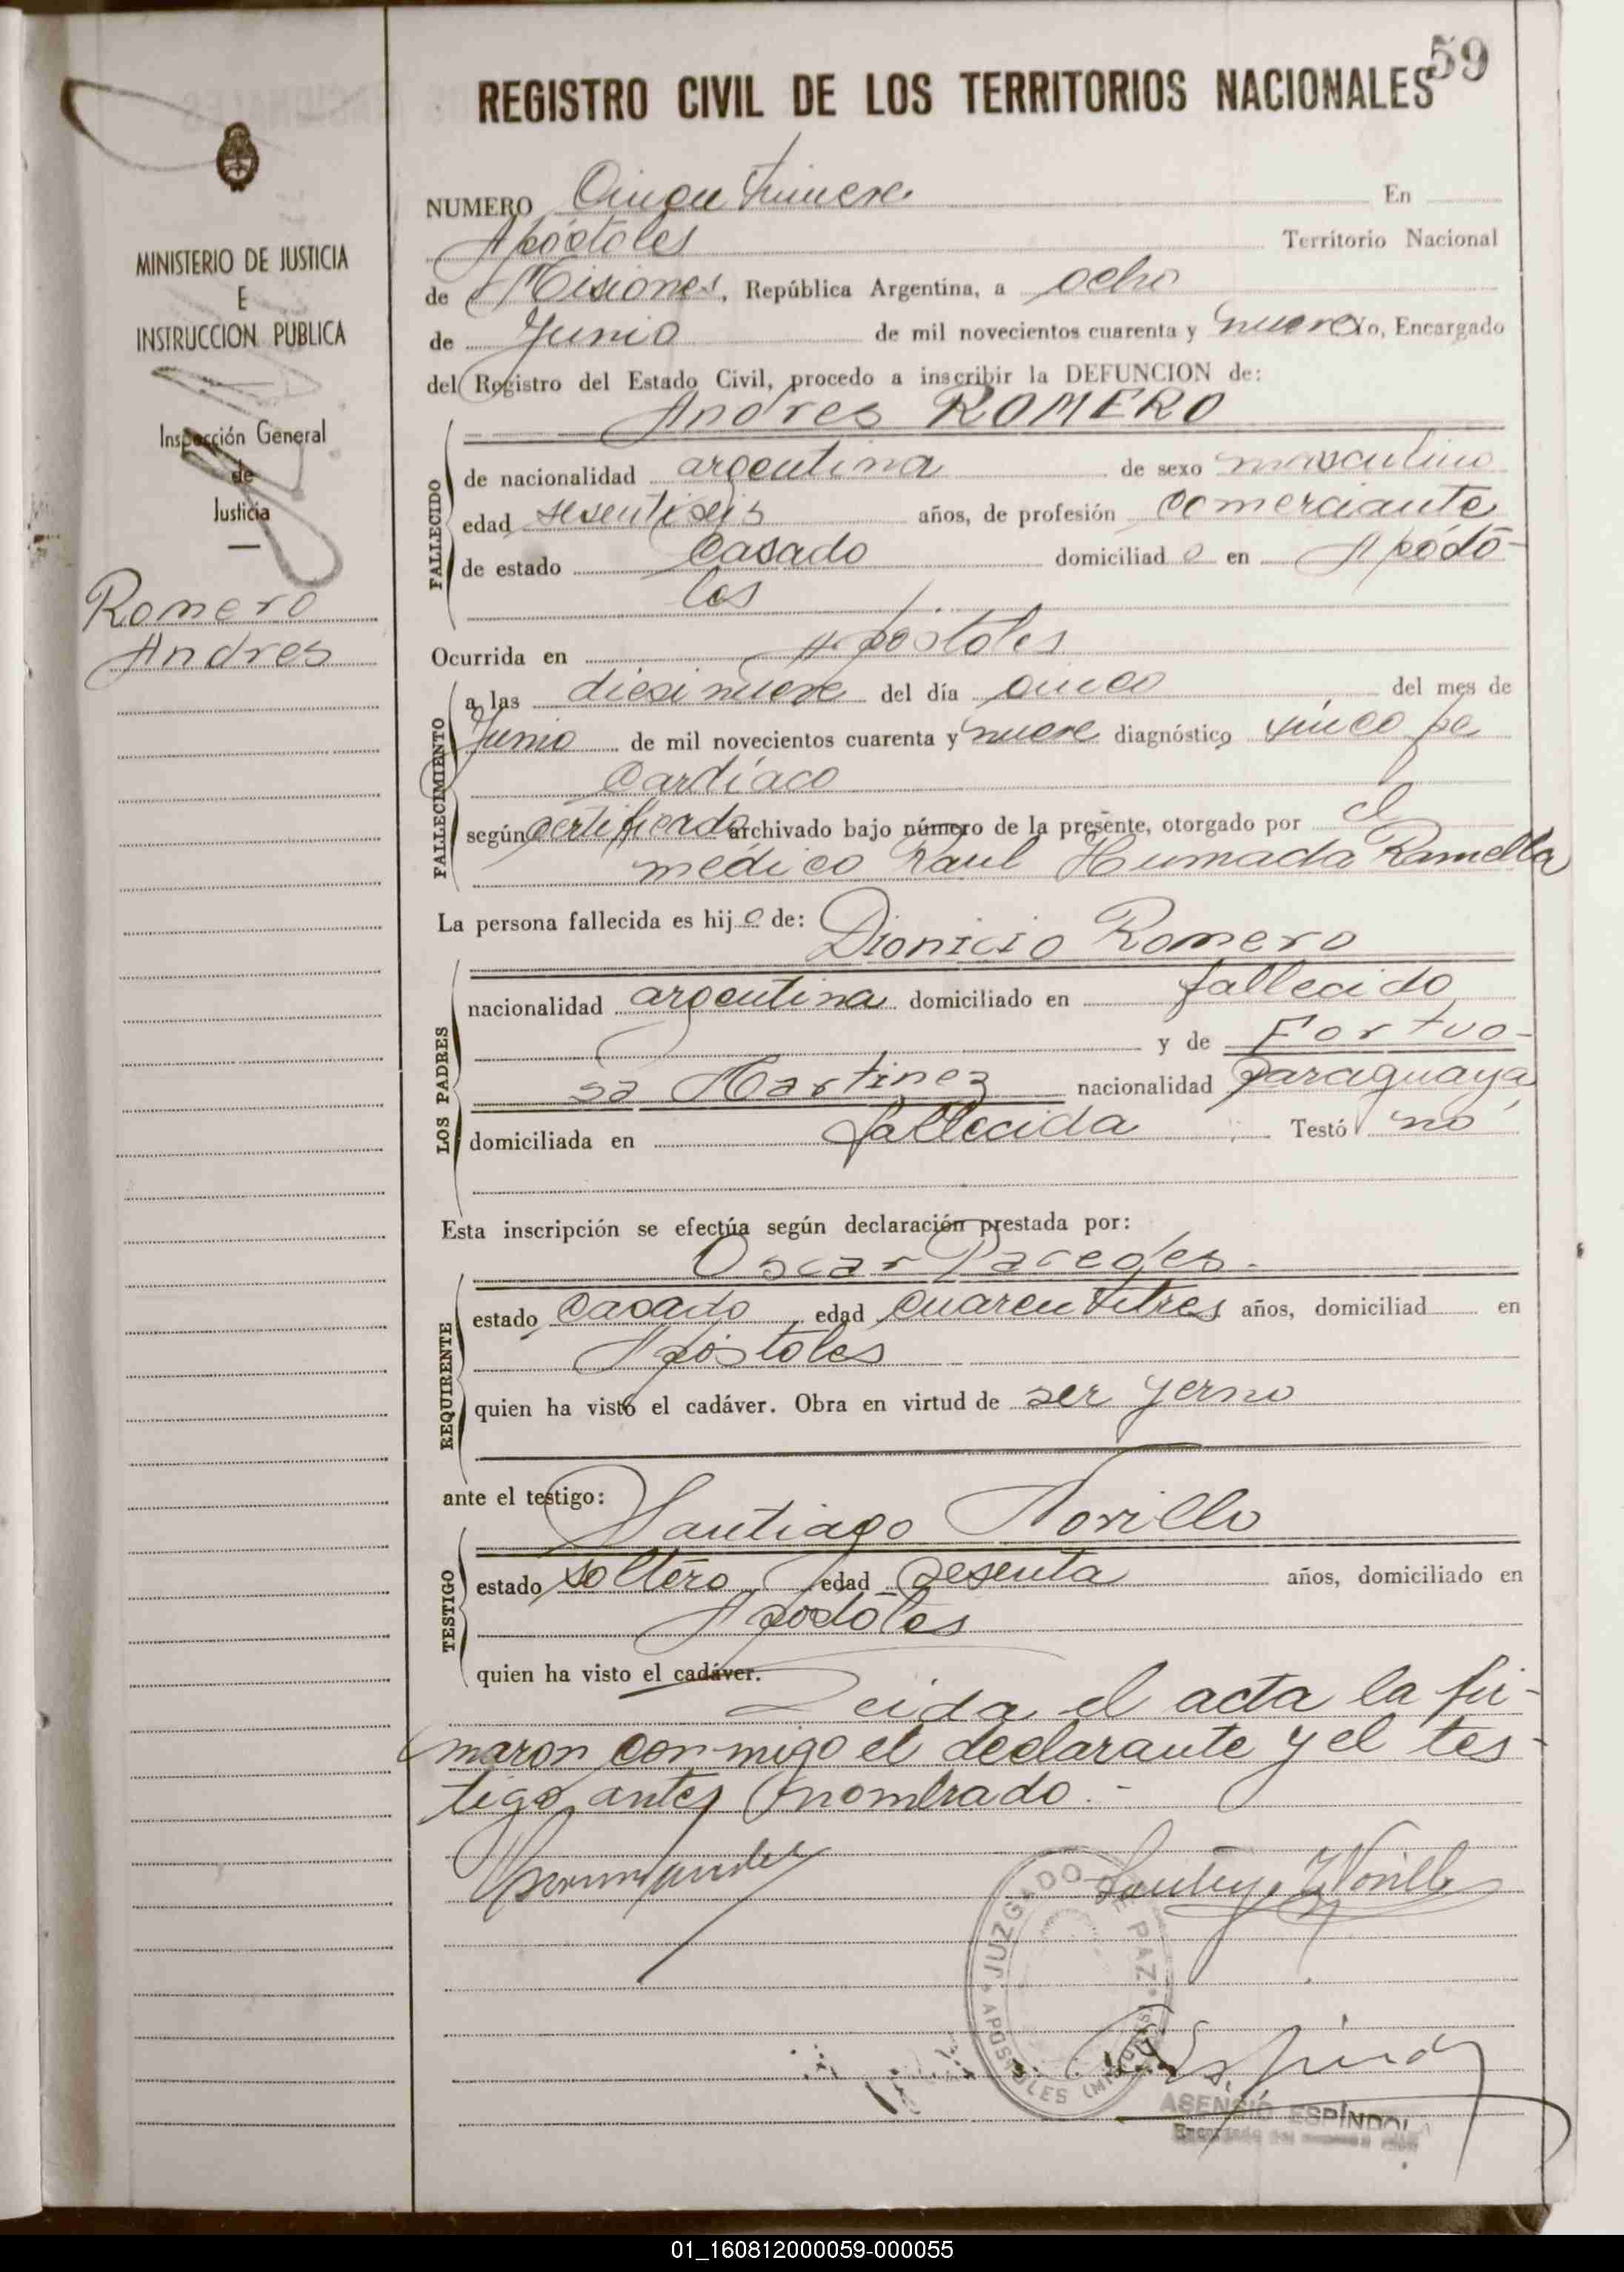 59
REGISTRO CIVIL DE LOS TERRITORIOS NACIONALES
MINISTERIO DE JUSTICIA
E
INSTRUCCION PUBLICA
Inspección General
de
Justicia
Romero
Andres
NUMERO En
Apóstoles Territorio Nacional
de Misiones, República Argentina, a ocho
de Junio de mil novecientos cuarenta y nueve Yo, Encargado
del Registro del Estado Civil, procedo a inscribir la DEFUNCION de:
Andres ROMERO
FALLECIDO
de nacionalidad argentina de sexo masculino
edad sesentiseis años, de profesión comerciante
de estado Casado domiciliado en Apósto-
les
Ocurrida en Apostoles
FALLECIMIENTO
a las diesinueve del día cinco del mes de
Junio de mil novecientos cuarenta y nueve diagnóstico sincope
Cardíaco
según certificado archivado bajo número de la presente, otorgado por el
médico Raul Humada Ramella
La persona fallecida es hijo de: Dionicio Romero
LOS PADRES
nacionalidad argentina domiciliado en fallecido
y de Fortuo-
sa Martinez nacionalidad paraguaya
domiciliada en fallecida Testó no
Esta inscripción se efectúa según declaración prestada por:
Oscar Paredes.
REQUIRENTE
estado Casado edad cuarentitres años, domiciliad en
Apóstoles
quien ha visto el cadáver. Obra en virtud de ser yerno
ante el testigo: Santiago Novillo
TESTIGO
estado soltero edad sesenta años, domiciliado en
Apóstoles
quien ha visto el cadáver.
Leida el acta la fir-
maron conmigo el declarante y el tes-
tigo antes nombrado.-
JUZGADO DE PAZ
APOSTOLES (MISIONES)
ASENCIO ESPÍNDOLA
01_160812000059-000055